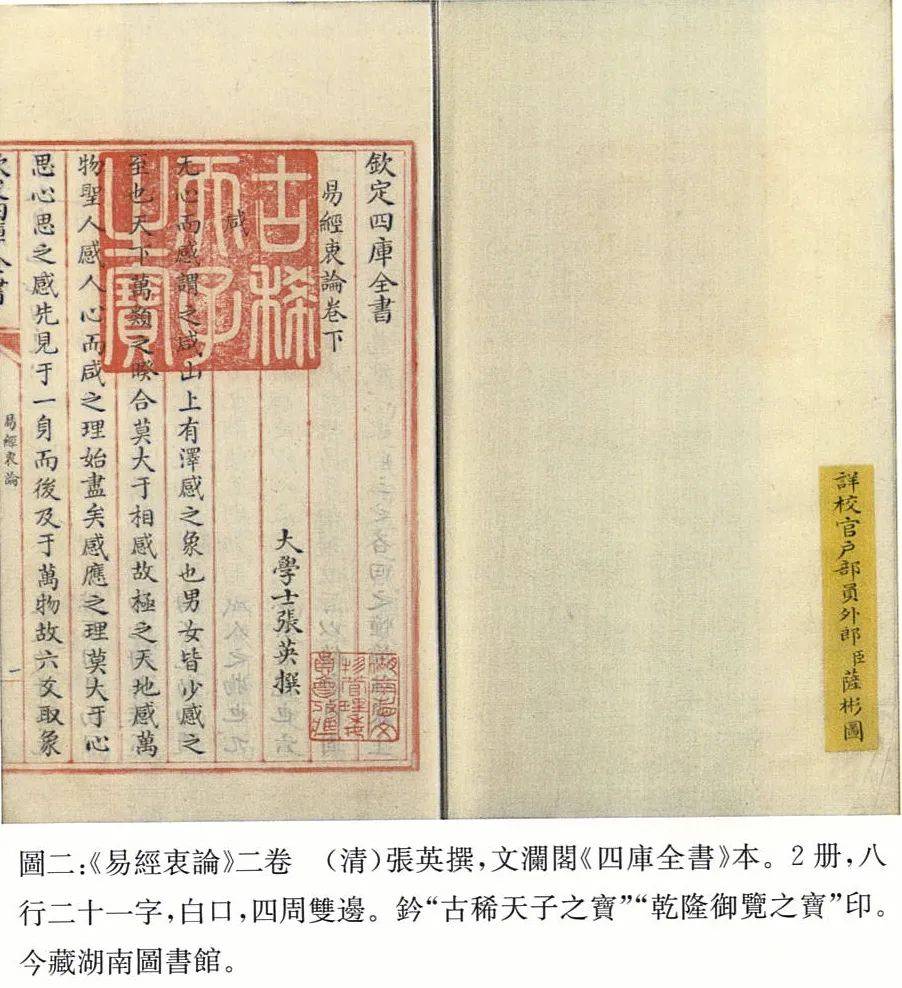 詳校官户部員外郎臣薩彬圖
欽定四庫全書
易經衷論卷下
大學士張英撰
咸
无心而感謂之咸山上有澤感之象也男女皆少感之
至也天下萬類之暌合莫大于相感故極之天地感萬
物聖人感人心而咸之理始盡矣感應之理莫大于心
思心思之感先見于一身而後及于萬物故六爻取象
易經衷論
一
古稀
天子
之寶
湖南省文
物管理委
圖二:《易經衷論》二卷　(清)張英撰,文瀾閣《四庫全書》本。2册,八
行二十一字,白口,四周雙邊。鈐“古稀天子之寶”“乾隆御覽之寶”印。
今藏湖南圖書館。